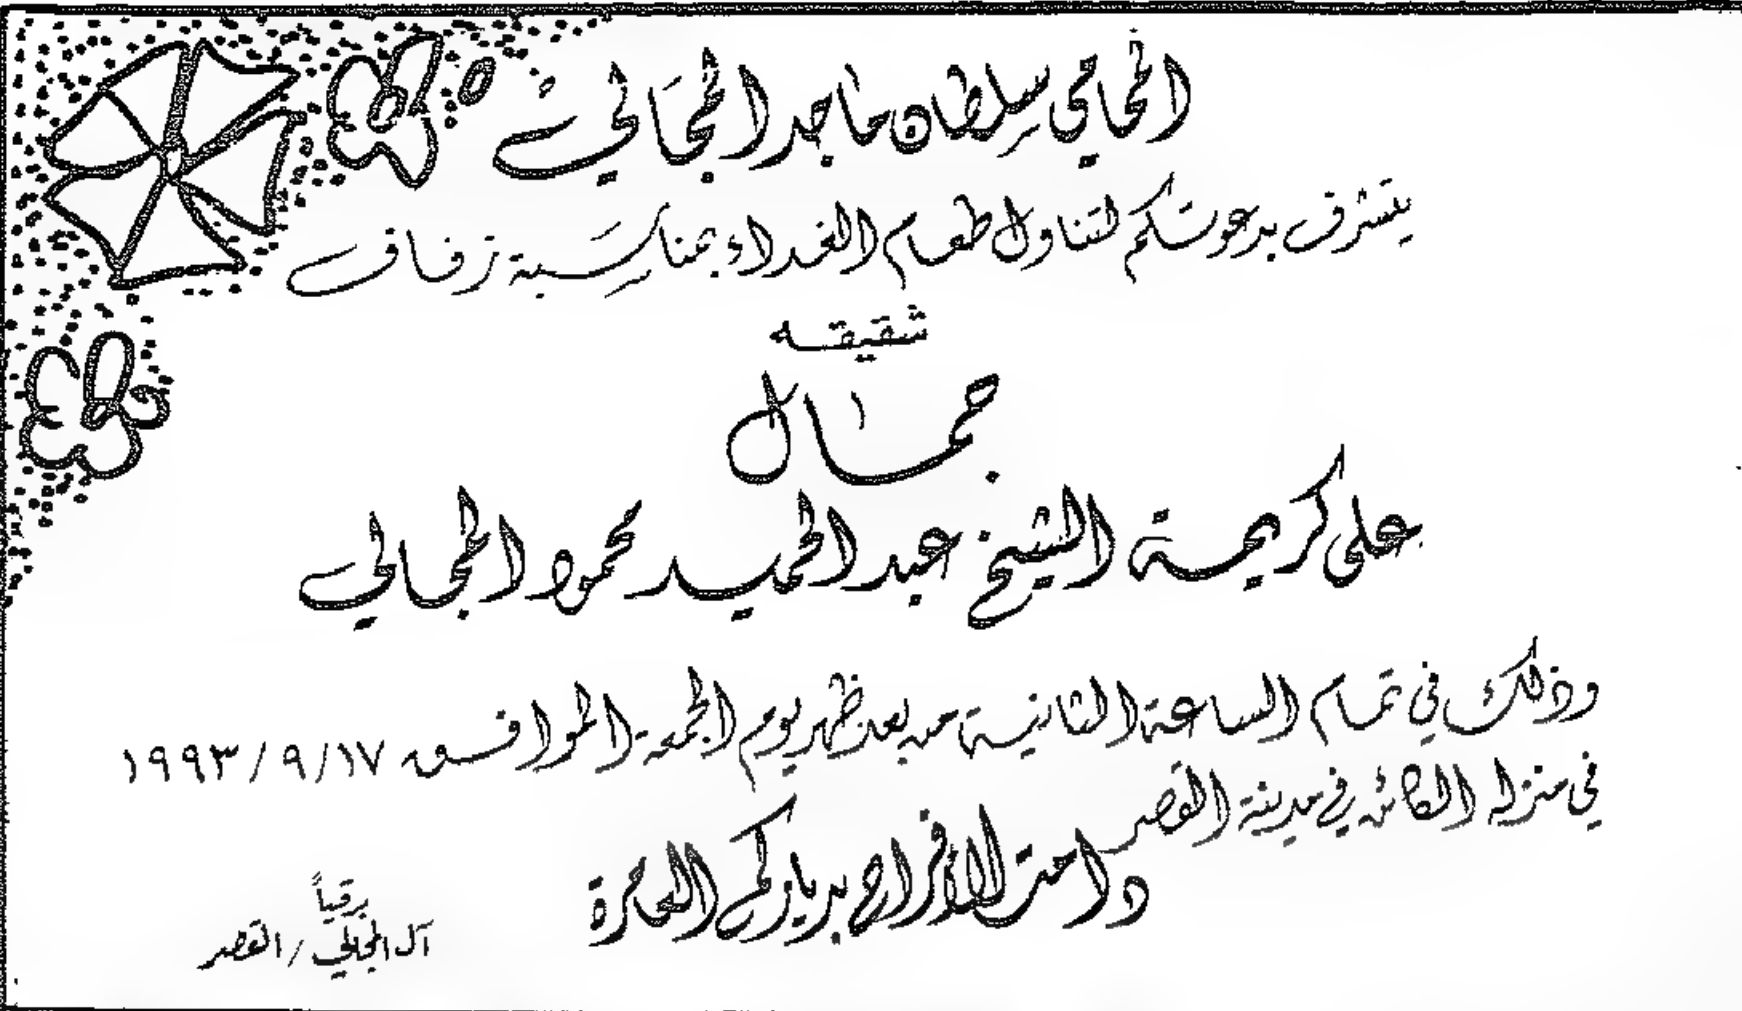 المحامي سلطان ماجد المجالي
يتشرف بدعوتكم لتناول طعام الغداء بمناسبة زفاف
شقيقه
جمال
على كريمة الشيخ عبد الحميد محمود المجالي
وذلك في تمام الساعة الثانية من بعد ظهر يوم الجمعة الموافق ١٧/٩/١٩٩٣
في منزله الكائن في مدينة القصر
دامت الأفراح بدياركم العامرة
برقياً
آل المجالي / القصر